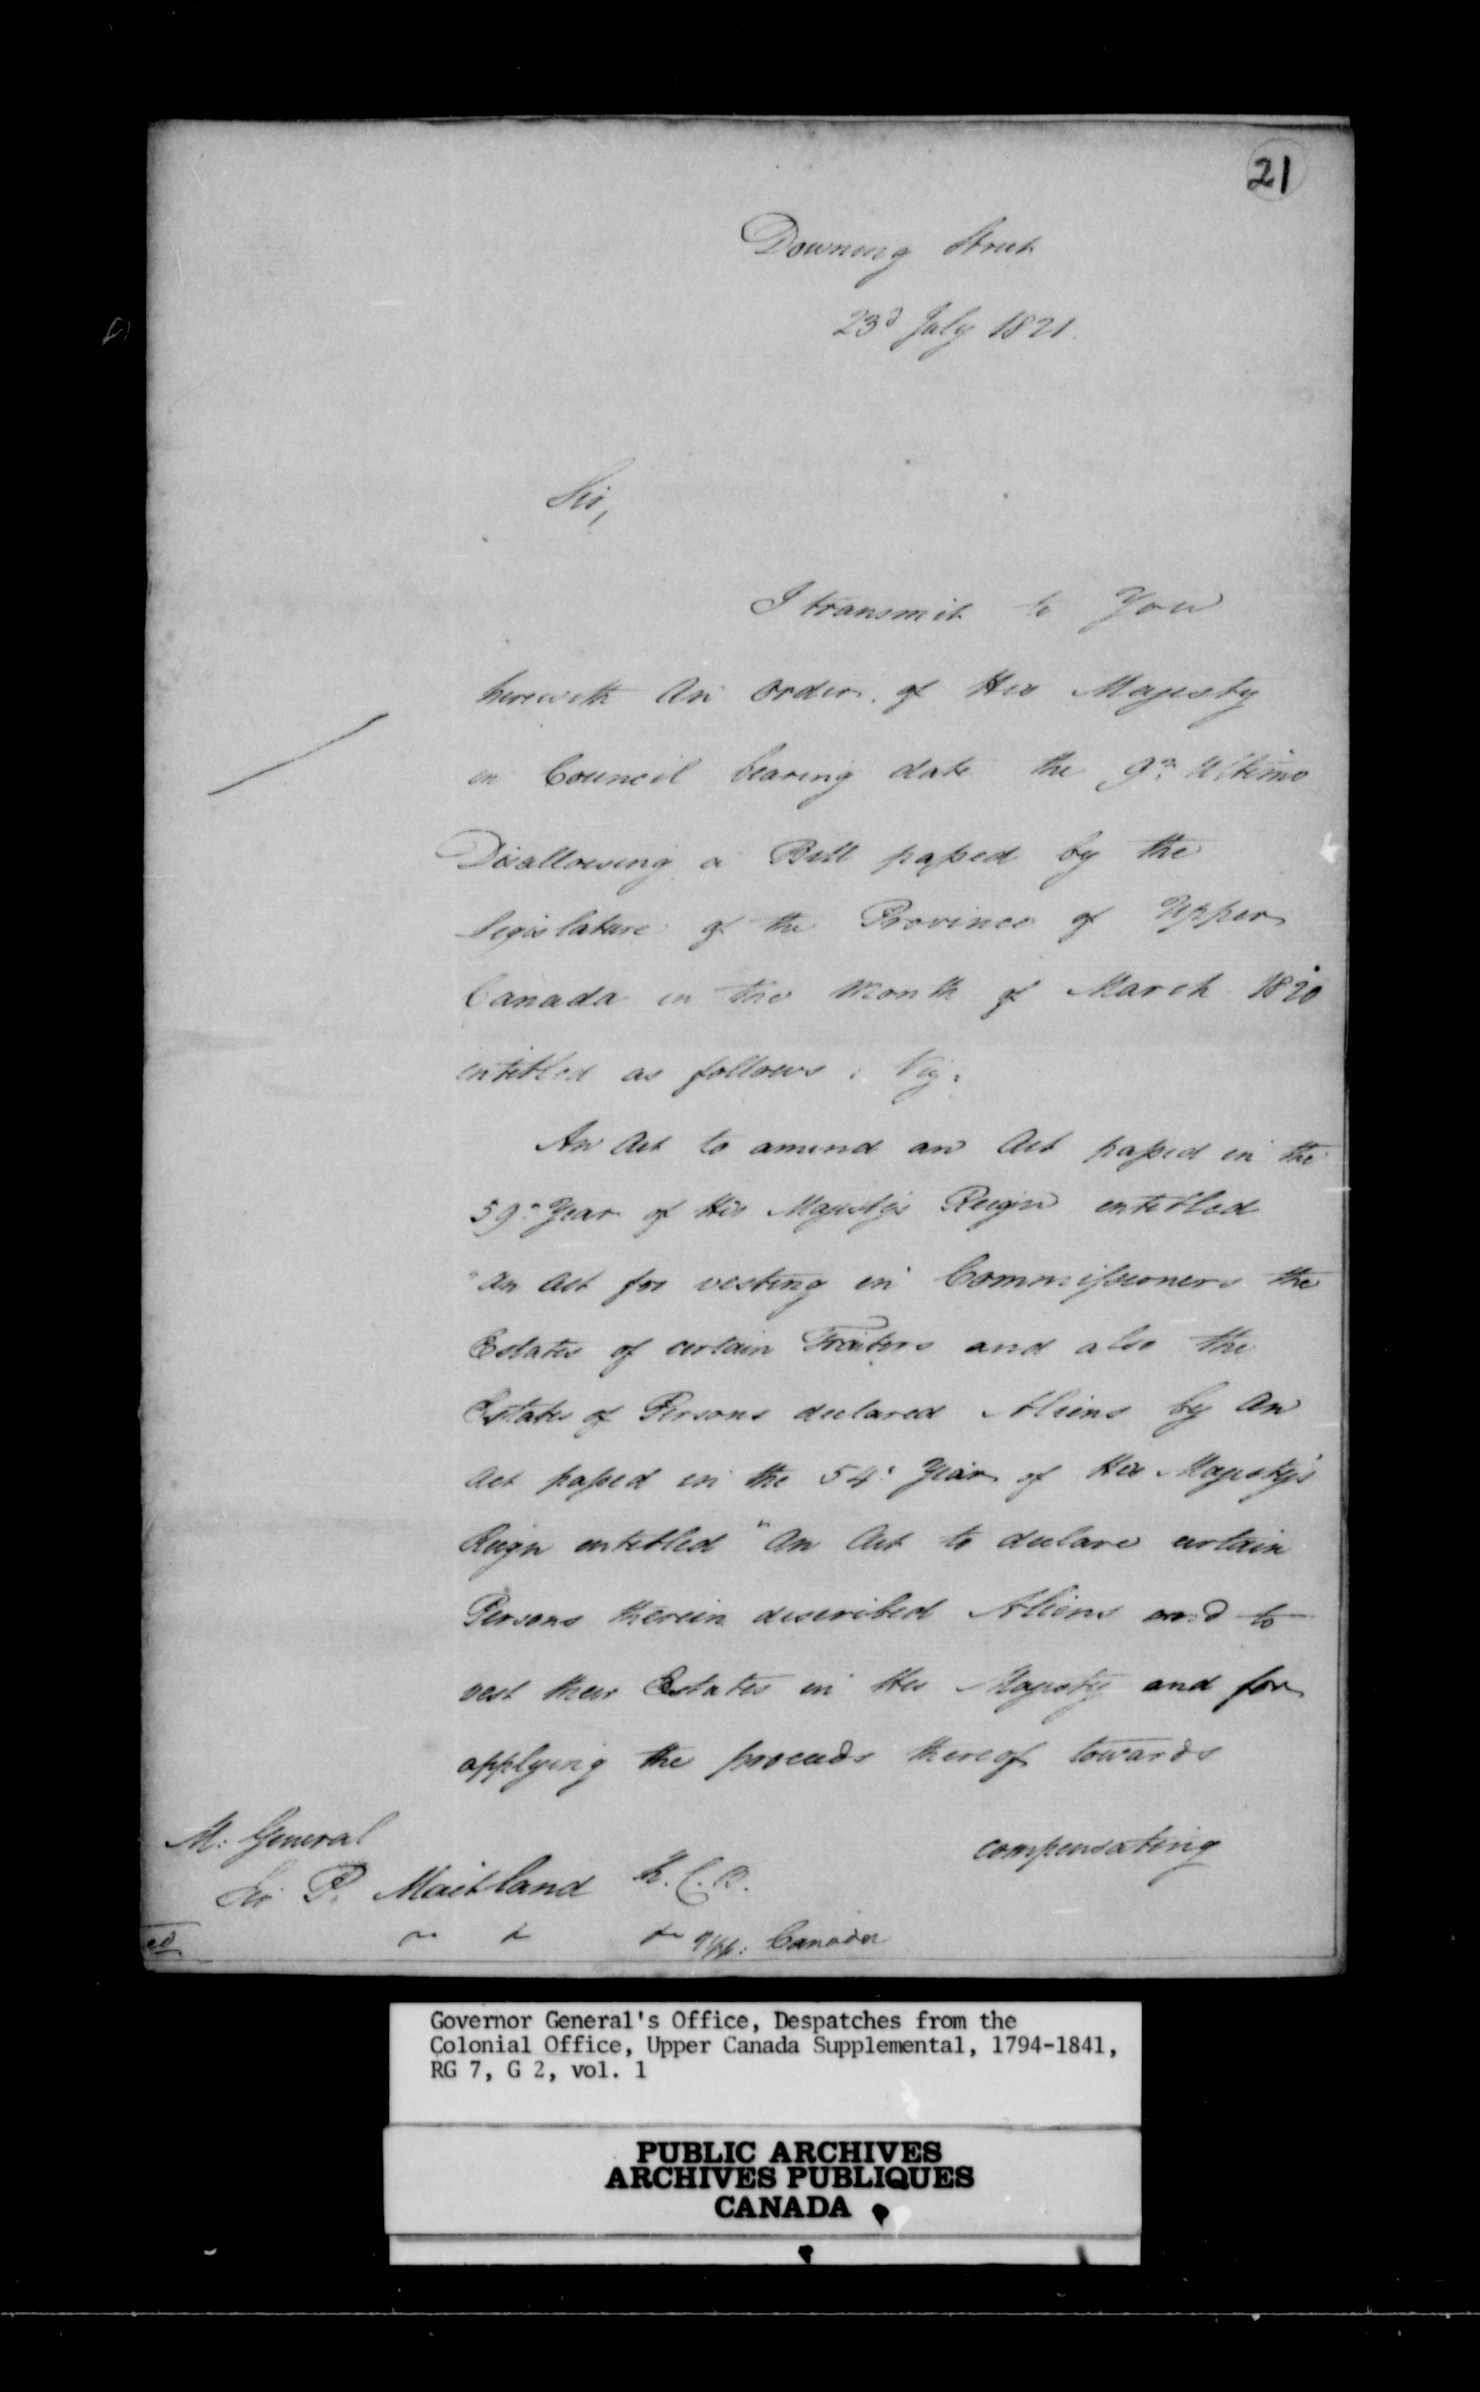 21
Downing Street
23d July 1821.
Sir,
I transmit to You
herewith An Order of His Majesty
in Council bearing date the 9th Ultimo
Disallowing a Bill passed by the
Legislature of the Province of Upper
Canada in the Month of March 1820
entitled as follows: Viz:
An Act to amend an Act passed in the
59th Year of His Majesty's Reign entitled
"An Act for vesting in Commissioners the
Estates of certain Traitors and also the
Estates of Persons declared Aliens by An
Act passed in the 54: Year of His Majesty's
Reign entitled "An Act to declare certain
Persons therein described Aliens and to
vest their Estates in His Majesty and for
applying the proceeds thereof towards
compensating
M: General
Sir P. Maitland K.C.B.
Upp: Canada
Governor General's Office, Despatches from the
Colonial Office, Upper Canada Supplemental, 1794-1841,
RG 7, G 2, vol. 1
PUBLIC ARCHIVES
ARCHIVES PUBLIQUES
CANADA